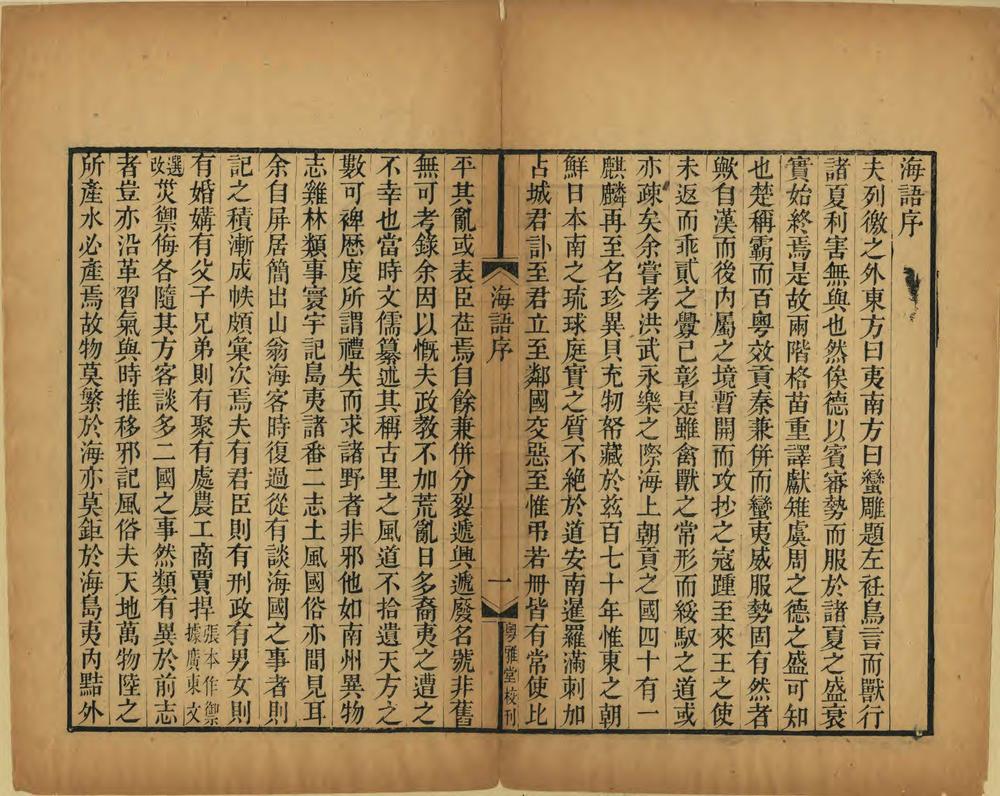 海語序
夫列徼之外東方曰夷南方曰蠻雕題左衽鳥言而獸行
諸夏利害無與也然俟德以賓審勢而服於諸夏之盛衰
實始終焉是故兩階格苗重譯獻雉虞周之德之盛可知
也楚稱霸而百粵效貢秦兼併而蠻夷威服勢固有然者
歟自漢而後內屬之境暫開而攻抄之寇踵至來王之使
未返而乖貳之釁已彰是雖禽獸之常形而綏馭之道或
亦疎矣余嘗考洪武永樂之際海上朝貢之國四十有一
麒麟再至名珍異貝充牣帑藏於茲百七十年惟東之朝
鮮日本南之琉球庭實之質不絕於道安南暹羅滿刺加
占城君訃至君立至鄰國交惡至惟弔若冊皆有常使比
海語序
一
粵雅堂校刊
平其亂或表臣莅焉自餘兼併分裂遞興遞廢名號非舊
無可考錄余因以慨夫政教不加荒亂日多裔夷之遭之
不幸也當時文儒纂述其稱古里之風道不拾遺天方之
數可裨歷度所謂禮失而求諸野者非邪他如南州異物
志雞林類事寰宇記島夷諸番二志土風國俗亦間見耳
余自屏居簡出山翁海客時復過從有談海國之事者則
記之積漸成帙頗彙次焉夫有君臣則有刑政有男女則
有婚媾有父子兄弟則有聚有處農工商賈捍張本作禦據廣東文
選改災禦侮各隨其方客談多二國之事然類有異於前志
者豈亦沿革習氣與時推移邪記風俗夫天地萬物陸之
所產水必產焉故物莫繁於海亦莫鉅於海島夷內黠外